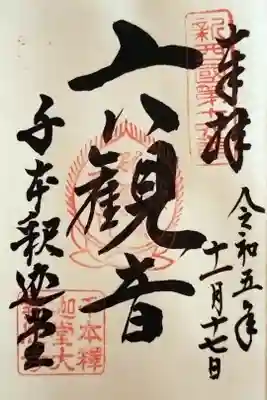 奉拝
令和五年
十一月十七日
六観音
千本釈迦堂
新西國第十六番
千本釋
迦堂大